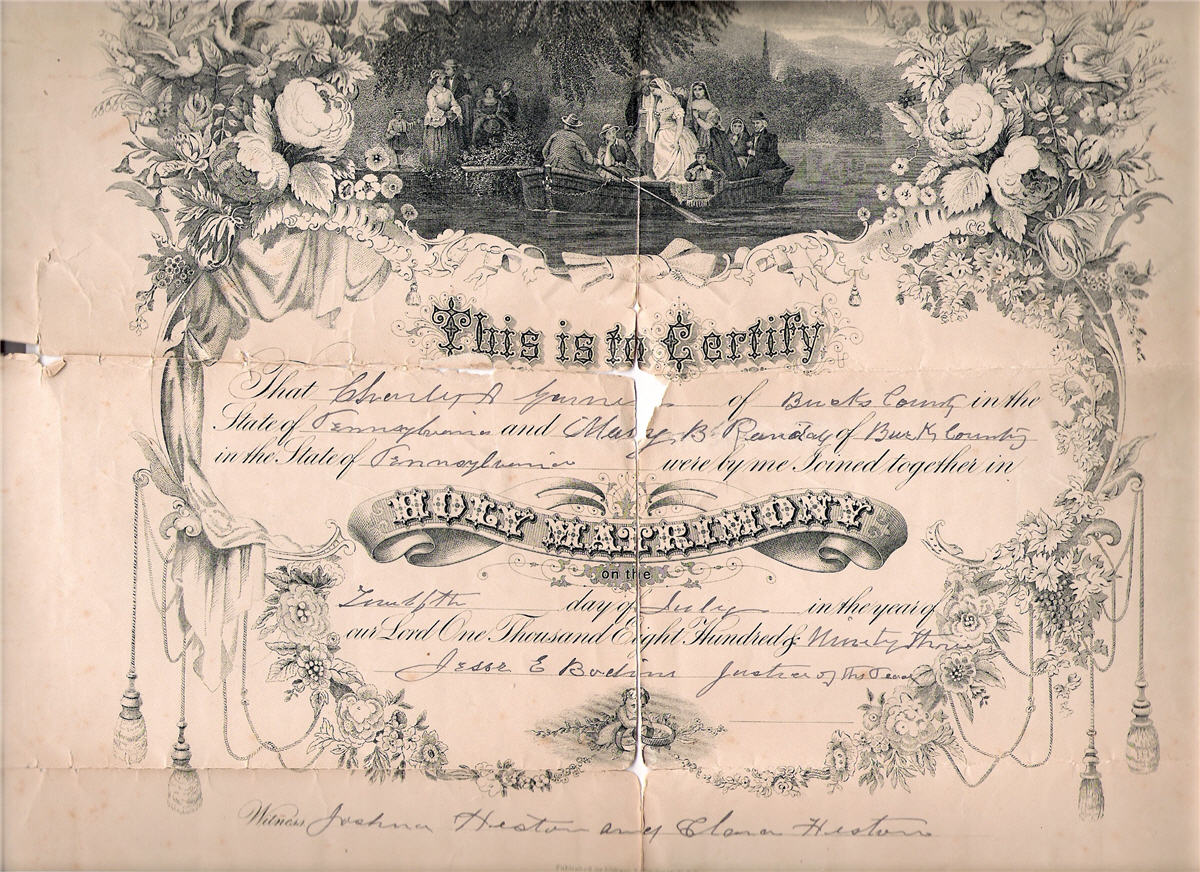 This is to Certify
That Charles A of Bucks County in the
State of Pennsylvania and Mary B. of Bucks County
in the State of Pennsylvania were by me Joined together in
HOLY MATRIMONY
on the
Twelfth day of July in the year of
our Lord One Thousand Eight Hundred & Ninety three
Jesse E Justice of the Peace
Witness Joshua Heston and Clara Heston